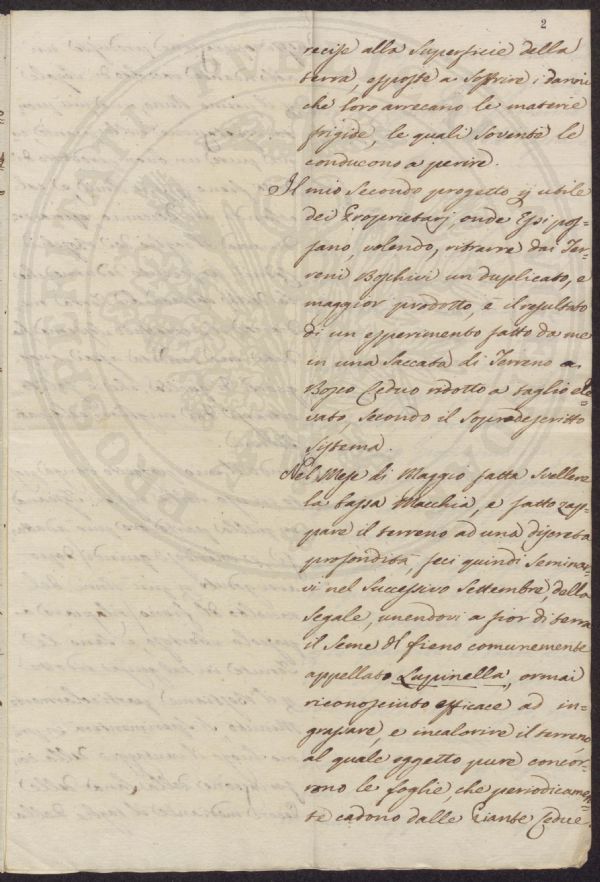 2
recise alla Superficie della
terra, esposte a Soffrire i danni
che loro arrecano le materie
frigide, le quali Sovente le
conducono a perire.
Il mio Secondo progetto p utile
dei Proprietarj, onde Essi pos=
sano, volendo, ritrarre dai Ter=
reni Boschivi un duplicato, e
maggior prodotto, è il resultato
di un esperimento fatto da me
in una Saccata di Terreno a
Bosco Ceduo ridotto a taglio ele=
vato, Secondo il Sopradescritto
Sistema.
Nel Mese di Maggio fatta Svellere
la bassa Macchia, e fatto zap=
pare il terreno ad una discreta
profondità, feci quindi Seminar=
vi nel Successivo Settembre della
Segale, unendovi a fior di terra
il Seme di fieno comunemente
appellato Lupinella, ormai
riconosciuto efficace ad in=
grassare, e incalorire il terreno,
al quale oggetto pure concor=
rono le foglie, che periodicamen=
te cadono dalle Piante Cedue.